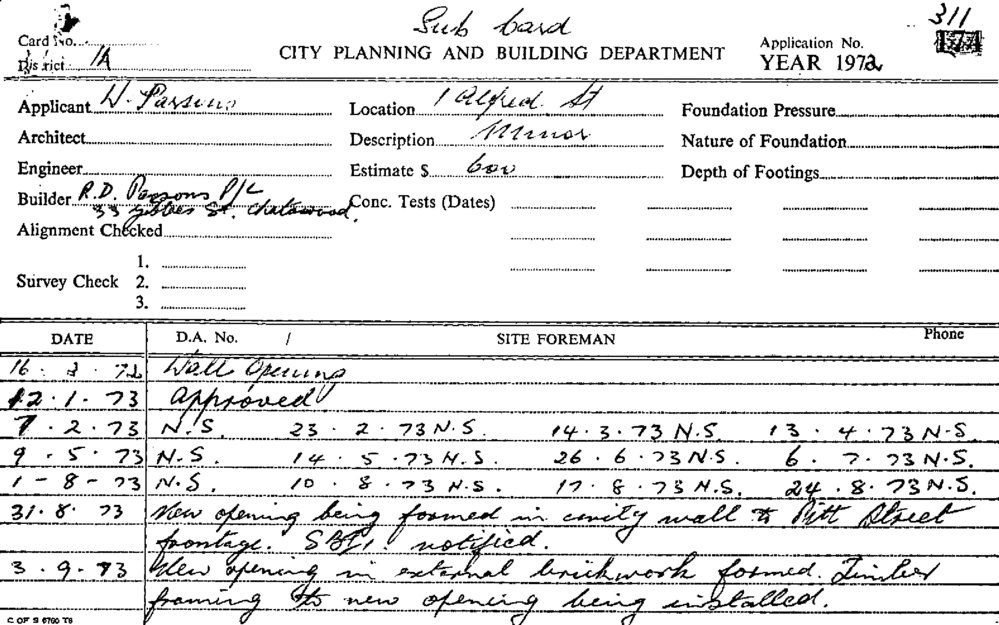 Sub Card
311
Card No.
CITY PLANNING AND BUILDING DEPARTMENT
Application No.
District 1A
YEAR 1972
Applicant W. Parsons
Location 1 Alfred St
Foundation Pressure
Architect
Description Minor
Nature of Foundation
Engineer
Estimate $ 600
Depth of Footings
Builder R.D. Parsons P/L
33 Gibbes St. Chatswood
Conc. Tests (Dates)
Alignment Checked
1.
Survey Check 2.
3.
DATE D.A. No. / SITE FOREMAN Phone
16 . 3 . 72 Wall Opening
12.1.73 Approved
7.2.73 N.S. 23.2.73 N.S. 14.3.73 N.S. 13.4.73 N.S.
9.5.73 N.S. 14.5.73 N.S. 26.6.73 N.S. 6.7.73 N.S.
1-8-73 N.S. 10.8.73 N.S. 17.8.73 N.S. 24.8.73 N.S.
31.8.73 New opening being formed in cavity wall to Pitt Street
frontage. notified.
3.9.73 New opening in external brickwork formed. Timber
framing to new opening being installed.
C OF S 6760 T6